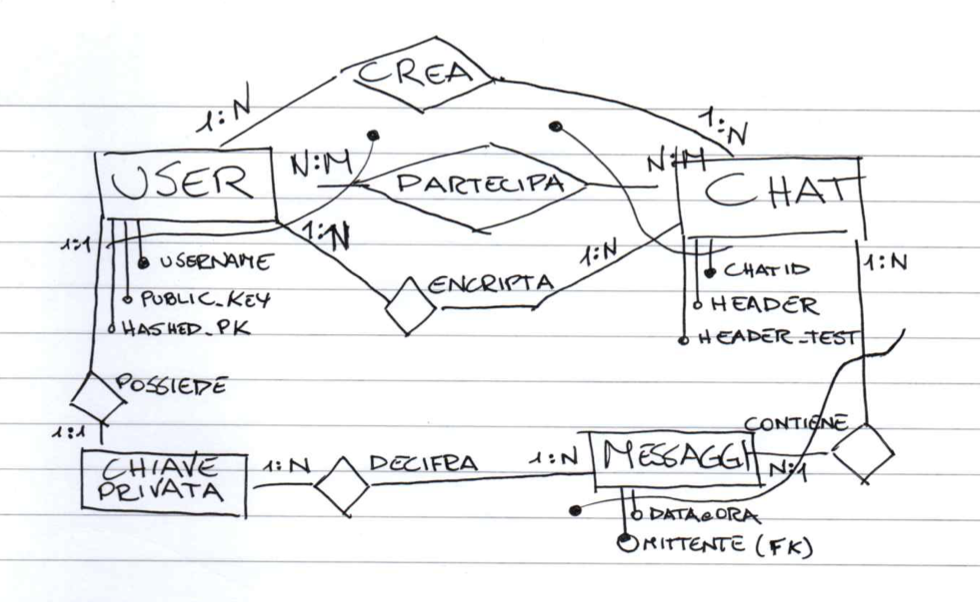 CREA
1:N
1:N
USER
N:M
PARTECIPA
N:M
CHAT
1:1
1:N
1:N
1:N
USERNAME
PUBLIC_KEY
HASHED_PK
ENCRIPTA
CHATID
HEADER
HEADER_TEST
POSSIEDE
1:1
CONTIENE
CHIAVE
PRIVATA
1:N
DECIFRA
1:N
MESSAGGI
N:1
DATAeORA
MITTENTE (FK)